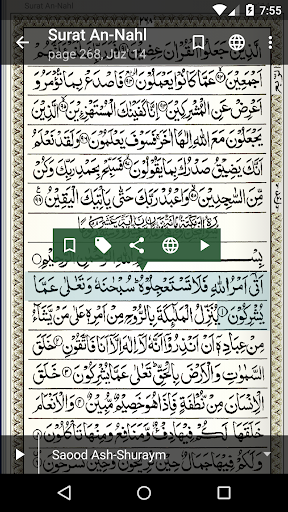 7:55
Surat An-Nahl
Surat An-Nahl
page 268, Juz' 14
الَّذِيْنَ جَعَلُوا الْقُرْاٰنَ
اَجْمَعِيْنَ عَمَّا كَانُوْا يَعْمَلُوْنَ فَاصْدَعْ بِمَا تُؤْمَرُ وَ
اَعْرِضْ عَنِ الْمُشْرِكِيْنَ اِنَّا كَفَيْنٰكَ الْمُسْتَهْزِءِيْنَ الَّذِيْنَ
يَجْعَلُوْنَ مَعَ اللّٰهِ اِلٰهًا اٰخَرَ فَسَوْفَ يَعْلَمُوْنَ وَلَقَدْ نَعْلَمُ
اَنَّكَ يَضِيْقُ صَدْرُكَ بِمَا يَقُوْلُوْنَ فَسَبِّحْ بِحَمْدِ رَبِّكَ وَكُنْ
مِّنَ السّٰجِدِيْنَ وَاعْبُدْ رَبَّكَ حَتّٰى يَاْتِيَكَ الْيَقِيْنُ
اَتٰۤى اَمْرُ اللّٰهِ فَلَا تَسْتَعْجِلُوْهُ سُبْحٰنَهٗ وَتَعٰلٰى عَمَّا
يُشْرِكُوْنَ يُنَزِّلُ الْمَلٰٓئِكَةَ بِالرُّوْحِ مِنْ اَمْرِهٖ عَلٰى مَنْ يَّشَآءُ
مِنْ عِبَادِهٖۤ اَنْ اَنْذِرُوْۤا اَنَّهٗ لَاۤ اِلٰهَ اِلَّاۤ اَنَا فَاتَّقُوْنِ خَلَقَ
السَّمٰوٰتِ وَالْاَرْضَ بِالْحَقِّ تَعٰلٰى عَمَّا يُشْرِكُوْنَ خَلَقَ
الْاِنْسَانَ مِنْ نُّطْفَةٍ فَاِذَا هُوَ خَصِيْمٌ مُّبِيْنٌ وَالْاَنْعَامَ
خَلَقَهَا لَكُمْ فِيْهَا دِفْءٌ وَّمَنَافِعُ وَمِنْهَا تَاْكُلُوْنَ
وَلَكُمْ فِيْهَا جَمَالٌ حِيْنَ تُرِيْحُوْنَ وَحِيْنَ تَسْرَحُوْنَ
Saood Ash-Shuraym